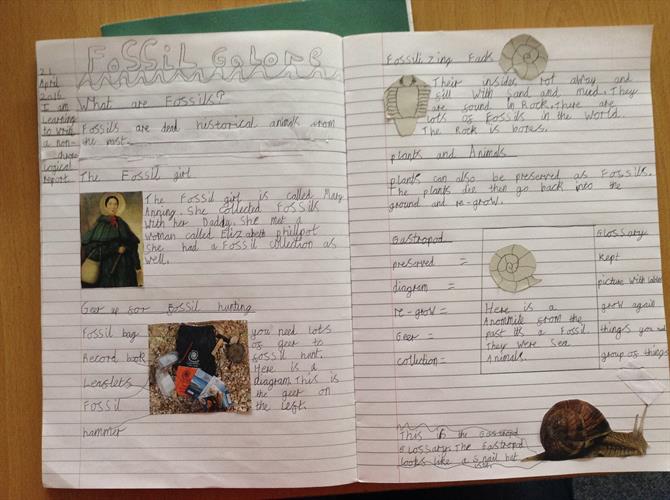 Fossil Galore
21
April
2015
I am
Learning
to write
a non-
chron
ological
report.
What are Fossils?
Fossils are dead historical animals from
the past.
The Fossil girl
The Fossil girl is called Mary
Anning. She collected Fossils
with her Daddy. She met a
woman called Elizabeth philpot
She had a Fossil collection as
well.
Geer up for Fossil hunting
Fossil bag
Record book
Leaflets
Fossil
hammer
you need lots
of geer to
fossil hunt.
Here is a
diagram. This is
the geer on
the left.
Fossilizing Facts
Their insides rot away and
fill with Sand and mud. They
are found in Rock. There are
lots of Fossils in the World.
The Rock is bones.
plants and Animals
plants can also be preserved as Fossils.
The plants die then go back into the
ground and re-grow.
Gastropod
Glossary
preserved =
kept
diagram =
picture with labels
re-grow =
grow again
Geer =
things you
collection =
group of things
Here is a
Ammonite from the
past its a Fossil
They were Sea
Animals.
This is the Gastropod
Glossary. The Gastropod
looks like a snail but